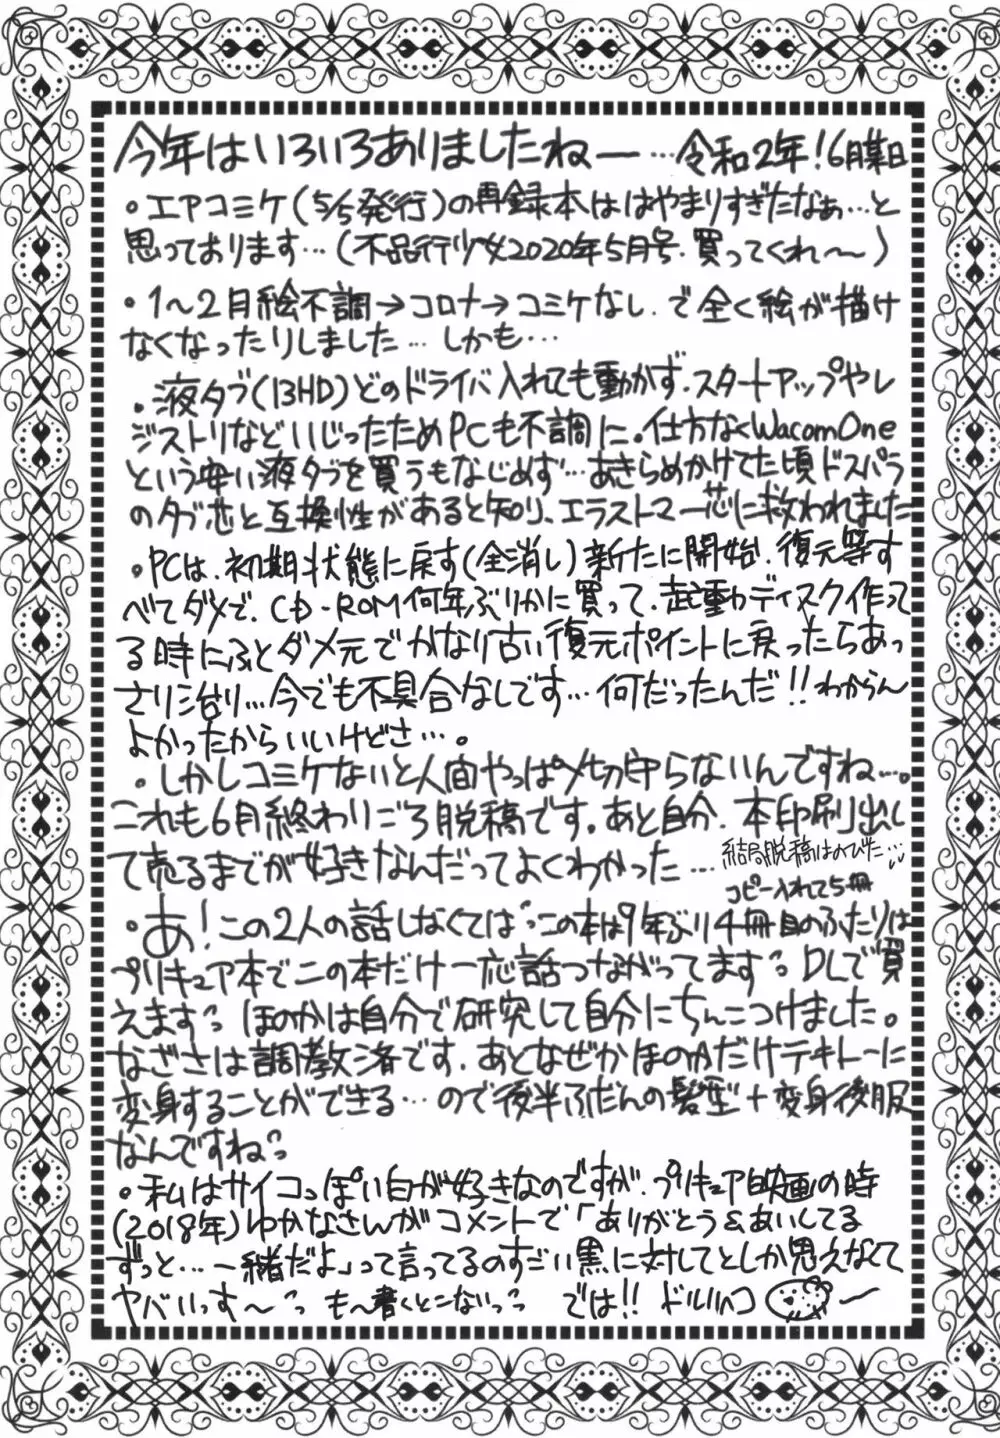 今年はいろいろありましたねー…令和2年！6月某日
・エアコミケ(5/5発行)の再録本ははやまりすぎたなぁ…と
思っております…(不品行少女2020年5月号.買ってくれ〜)
・1〜2月絵不調→コロナ→コミケなし.で全く絵が描け
なくなったりしました…しかも…
・液タブ(13HD)どのドライバ入れても動かず.スタートアップやレ
ジストリなどいじったためPCも不調に。仕方なくWacomOne
という安い液タブを買うもなじめず…あきらめかけてた頃ドスパラ
のタブ芯と互換性があると知り、エラストマー芯に救われました
・PCは、初期状態に戻す(全消し)新たに開始.復元等す
べてダメで、CD-ROM何年ぶりかに買って、起動ディスク作って
る時にふとダメ元でかなり古い復元ポイントに戻ったらあっ
さり治り…今でも不具合なしです…何だったんだ!!わからん
よかったからいいけどさ…。
・しかしコミケないと人間やっぱ〆切守らないんですね…。
これも6月終わりごろ脱稿です。あと自分、本印刷出し
て売るまでが好きなんだってよくわかった…
結局脱稿はのびた…
コピー入れて5冊
・あ！この2人の話しなくては この本は9年ぶり4冊目のふたりは
プリキュア本でこの本だけ一応話つながってます DLで買
えます
なんですね
・私はサイコっぽい白が好きなのですが、プリキュア映画の時
(2018年)ゆかなさんがコメントで「ありがとう&あいしてる
ずっと…一緒だよ」って言ってるのすごい黒に対してとしか思えなくて
ヤバいっす〜 も〜書くとこないっ では!! ドルリヘコ